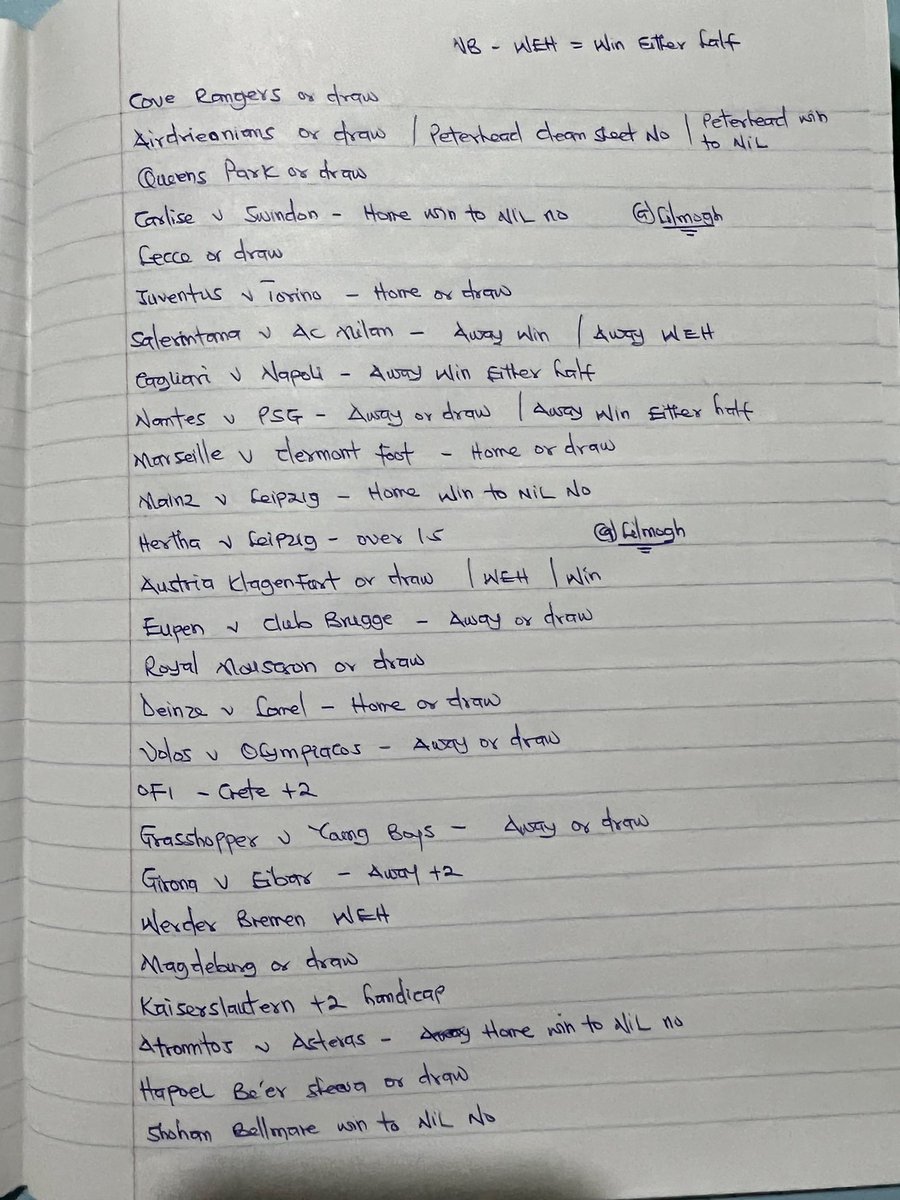 NB - WEH = Win Either half
Cove Rangers or draw
Airdrieonians or draw | Peterhead clean sheet No | Peterhead win to NiL
Queens Park or draw
Carlise v Swindon - Home win to NiL no @Lilmogh
Lecce or draw
Juventus v Torino - Home or draw
Salernntana v Ac Milan - Away Win | Away WEH
Cagliari v Napoli - Away Win Either half
Nantes v PSG - Away or draw | Away Win Either half
Marseille v clermont foot - Home or draw
Mainz v Leipzig - Home Win to NiL No
Hertha v Leipzig - over 1.5 @Lilmogh
Austria Klagenfurt or draw | WEH | Win
Eupen v Club Brugge - Away or draw
Royal Mouscron or draw
Deinze v Lomel - Home or draw
Volos v Olympiacos - Away or draw
OFI - Crete +2
Grasshopper v Young Boys - Away or draw
Girona v Eibar - Away +2
Werder Bremen WEH
Magdeburg or draw
Kaiserslautern +2 handicap
Atromtos v Asteras - Away Home win to NiL no
Hapoel Be'er sheva or draw
Shohan Bellmare win to NiL No